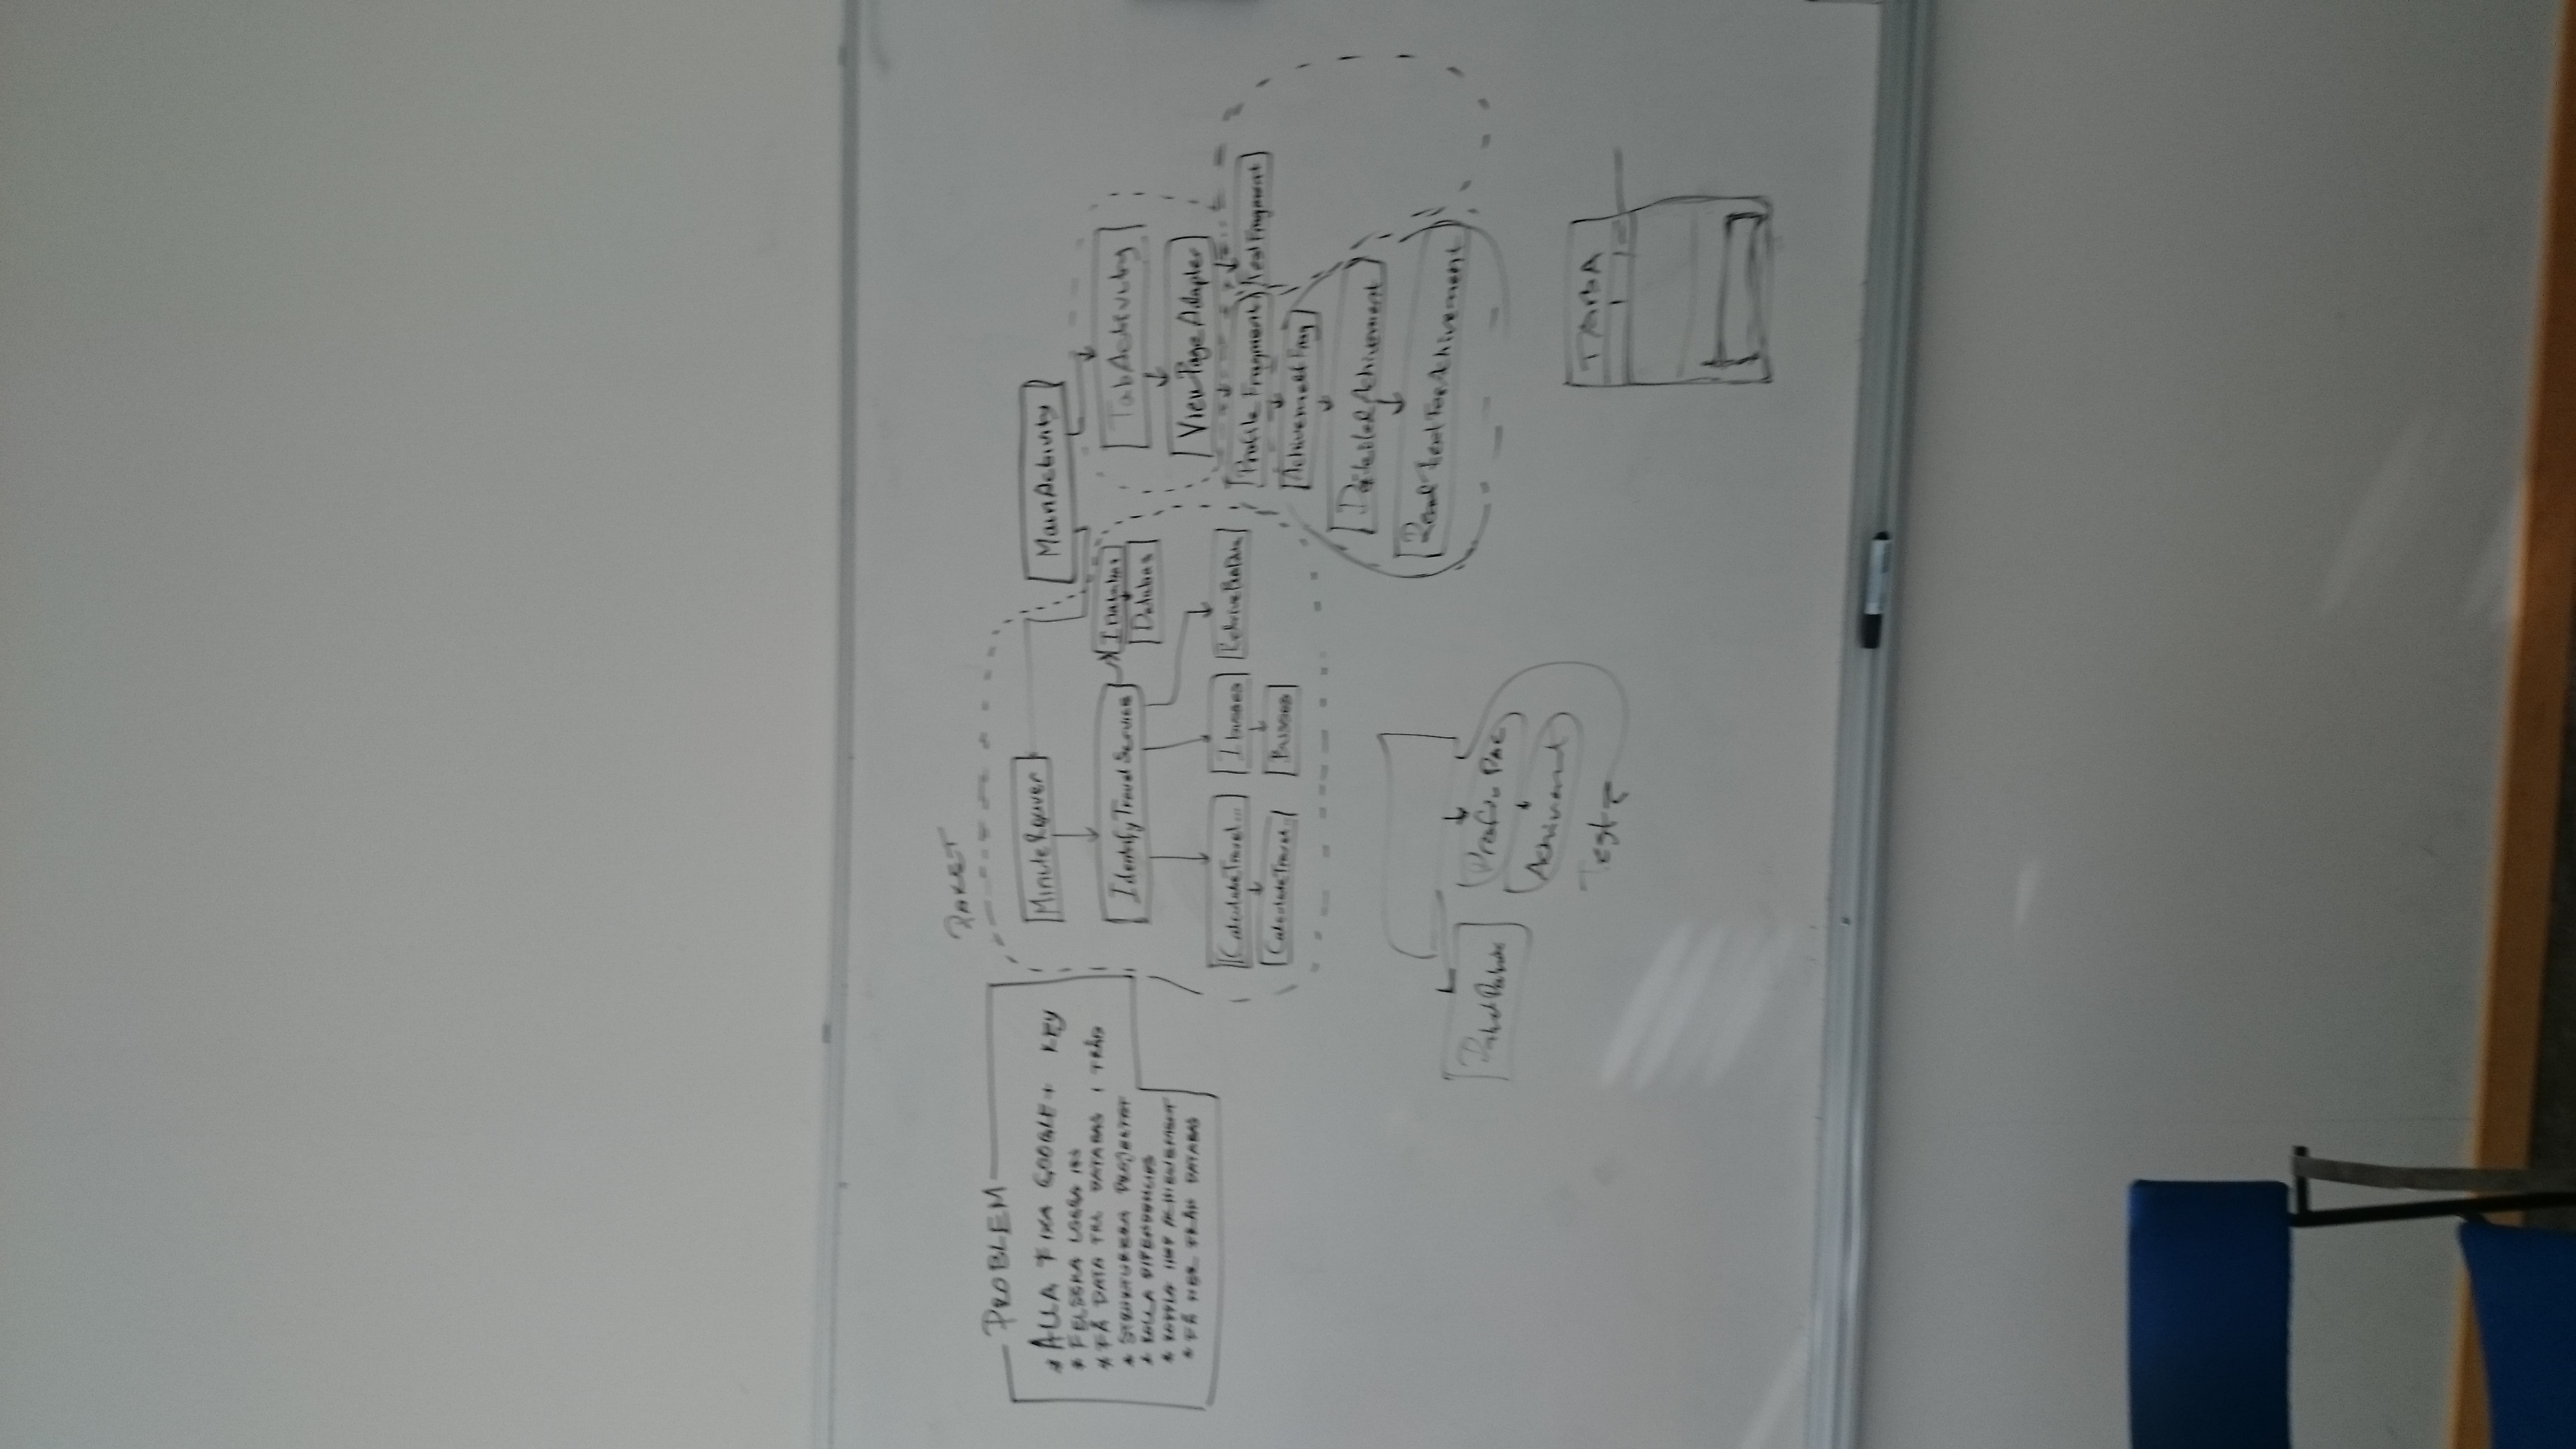 PROBLEM
* ALLA FIXA GOOGLE+ KEY
* FELSÖKA LOGGA IN
* FÅ DATA TILL DATABAS I TRÅD
* STRUKTURERA PROJEKTET
* KOLLA DIPENDENCIES
* KOPPLA IHOP ACHIEVEMENT
* FÅ NER FRÅN DATABAS
PAKET
MinuteReciver
IdentifyTravelService
IDatabas
Databas
ICalculateTravel...
CalculateTravel..
IBusses
Busses
MainActivity
TabActivity
ViewPageAdapter
Profile Fragment
Test Fragment
AchivementFrag
DetailedAchivement
ReadTextForAchivement
Achivment
Test